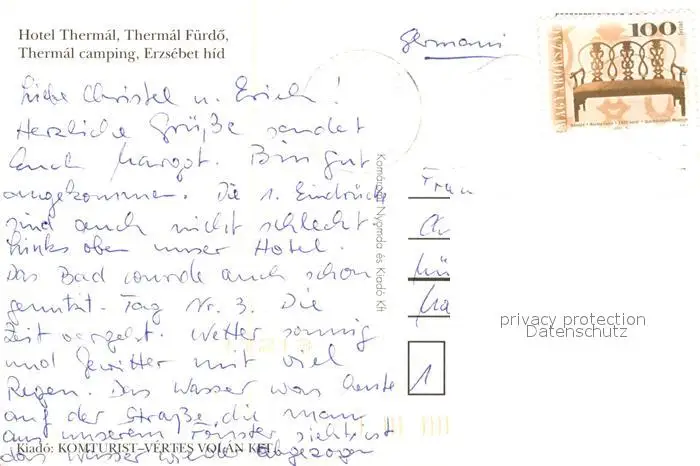 Hotel Thermál, Thermál Fürdő,
Thermál camping, Erzsébet híd
Germani
MAGYARORSZÁG
100
Liebe Christel u. Erich!
Herzliche Grüße sendet
Euch Margot. Bin gut
angekommen. Die 1. Eindrücke
sind auch nicht schlecht
Links oben unser Hotel.
Das Bad wurde auch schon
genutzt. Tag Nr. 3. Die
Zeit vergeht. Wetter sonnig
und Gewitter mit viel
Regen. Das Wasser war heute
auf der Straße, die man
aus unserem Fenster sieht, ist
das Wasser wieder abgezogen
Kiadó: KOMTURIST–VÉRTES VOLÁN Kft.
Komáromi Nyomda és Kiadó Kft
Frau
1
privacy protection
Datenschutz